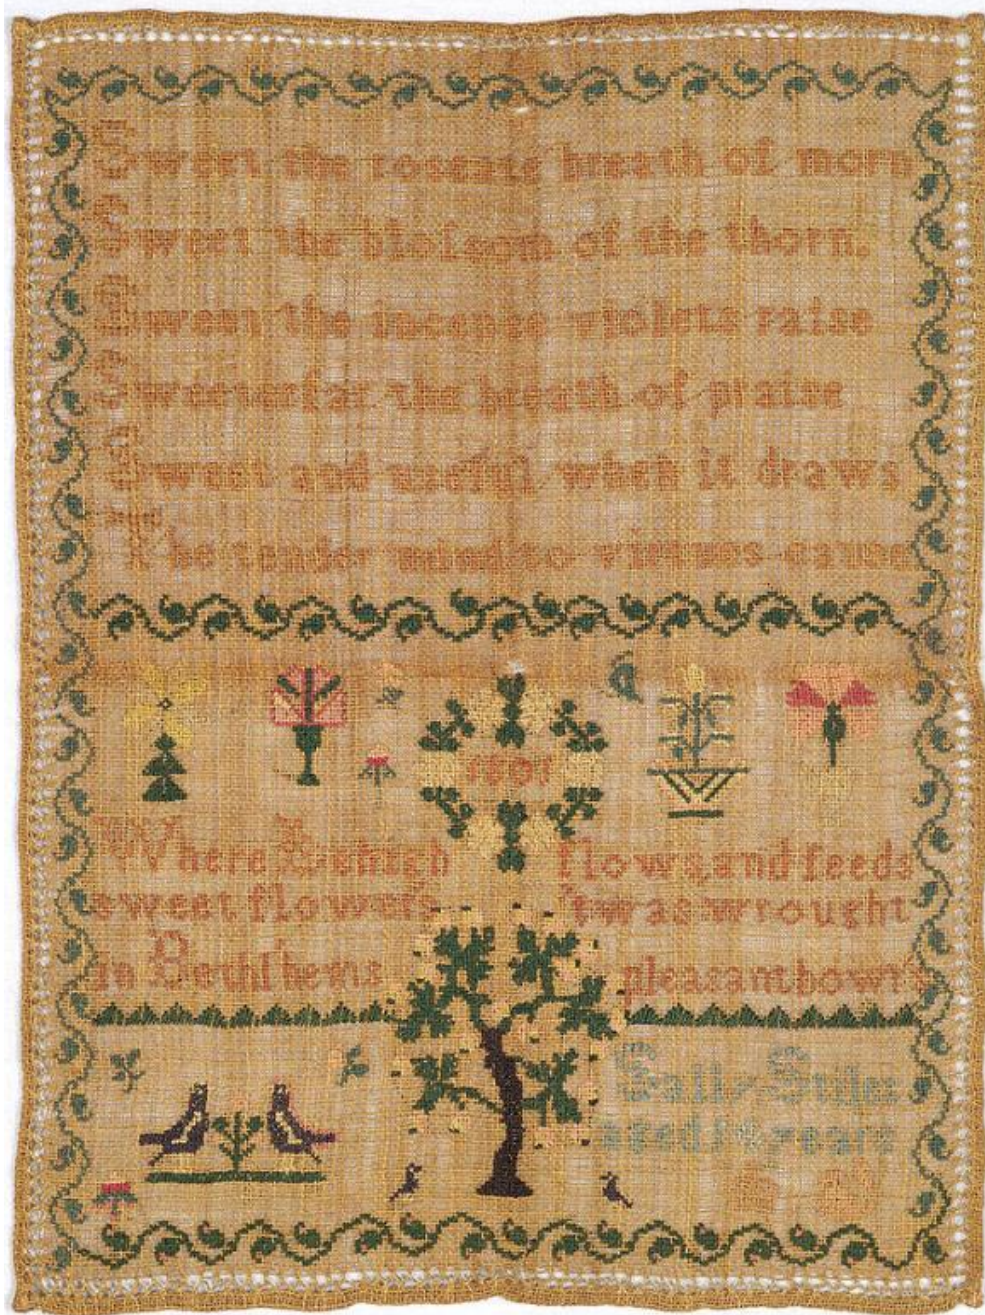 Sweet the roseate breath of morn
Sweet the bloſsom of the thorn.
Sweet the incense violets raise
Sweeter far the breath of praise
Sweet and useful when it draws
The tender mind to virtues cause
1801
Where Lehigh flows and feeds
sweet flowers 'twas wrought
in Bethl'hem's pleasant bow'rs
Sally Stiles
aged years